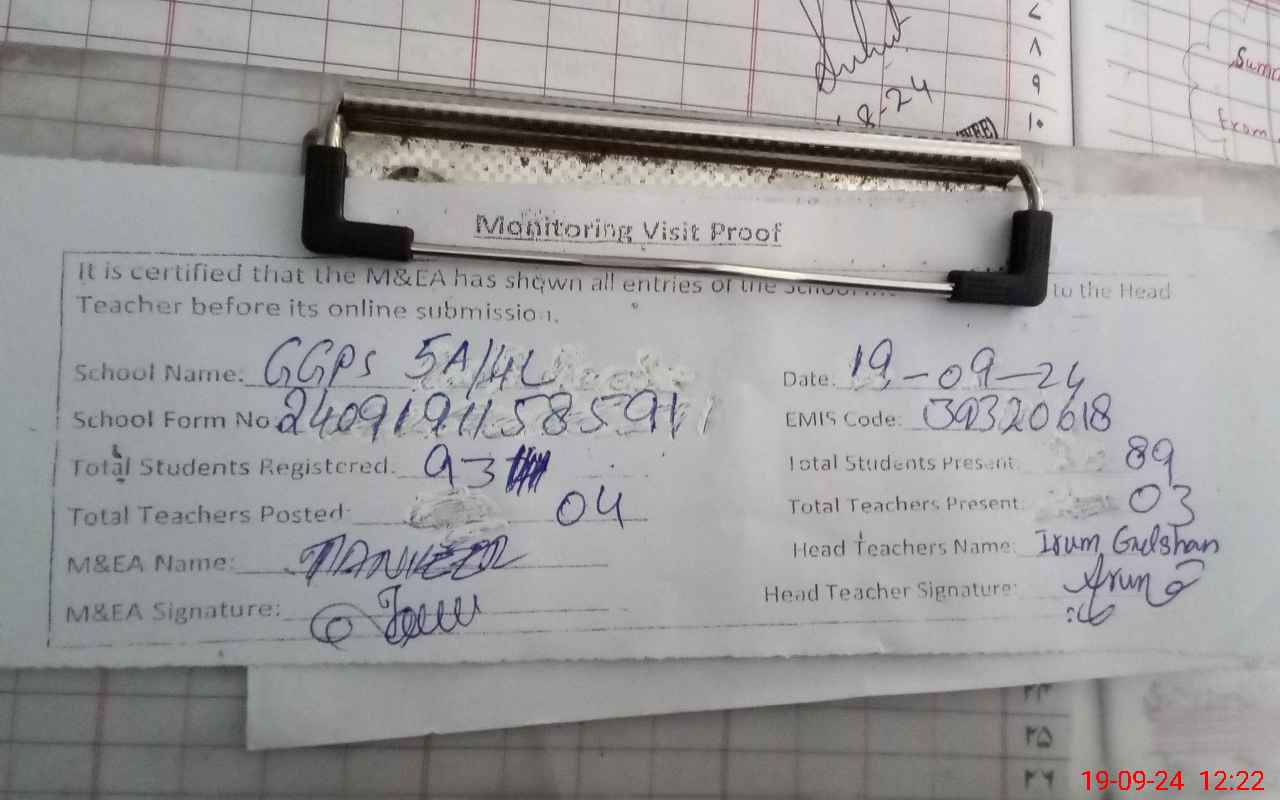 8-24
9
10
Monitoring Visit Proof
It is certified that the M&EA has shown all entries of the School to the Head
Teacher before its online submission.
School Name: GGPS 5A/4L Date: 19-09-24
School Form No EMIS Code: 39320618
Total Students Registered: 93 Total Students Present: 89
Total Teachers Posted: 04 Total Teachers Present: 03
M&EA Name: Head Teachers Name: Irum Gulshan
M&EA Signature: Head Teacher Signature:
۲۵
۲۶
19-09-24 12:22